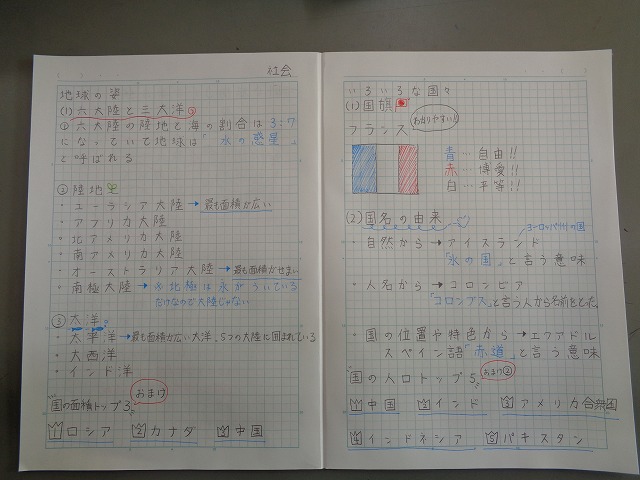 社会
地球の姿
(1)六大陸と三大洋
①六大陸の陸地と海の割合は3:7
になっていて地球は「水の惑星」
と呼ばれる
②陸地
・ユーラシア大陸→最も面積が広い
・アフリカ大陸
・北アメリカ大陸
・南アメリカ大陸
・オーストラリア大陸→最も面積がせまい
・南極大陸→※北極は氷がういている
だけなので大陸じゃない
③大洋
・太平洋→最も面積が広い大洋、5つの大陸に囲まれている
・大西洋
・インド洋
おまけ
"国の面積トップ3"
1ロシア 2カナダ 3中国
いろいろな国々
(1)国旗
わかりやすい!!
フランス
青…自由!!
赤…博愛!!
白…平等!!
(2)国名の由来
ヨーロッパ州の国
・自然から→アイスランド
「氷の国」と言う意味
・人名から→コロンビア
「コロンブス」と言う人から名前をとった。
・国の位置や特色から→エクアドル
スペイン語「赤道」と言う意味
おまけ②
"国の人口トップ5"
1中国 2インド 3アメリカ合衆国
4インドネシア 5パキスタン